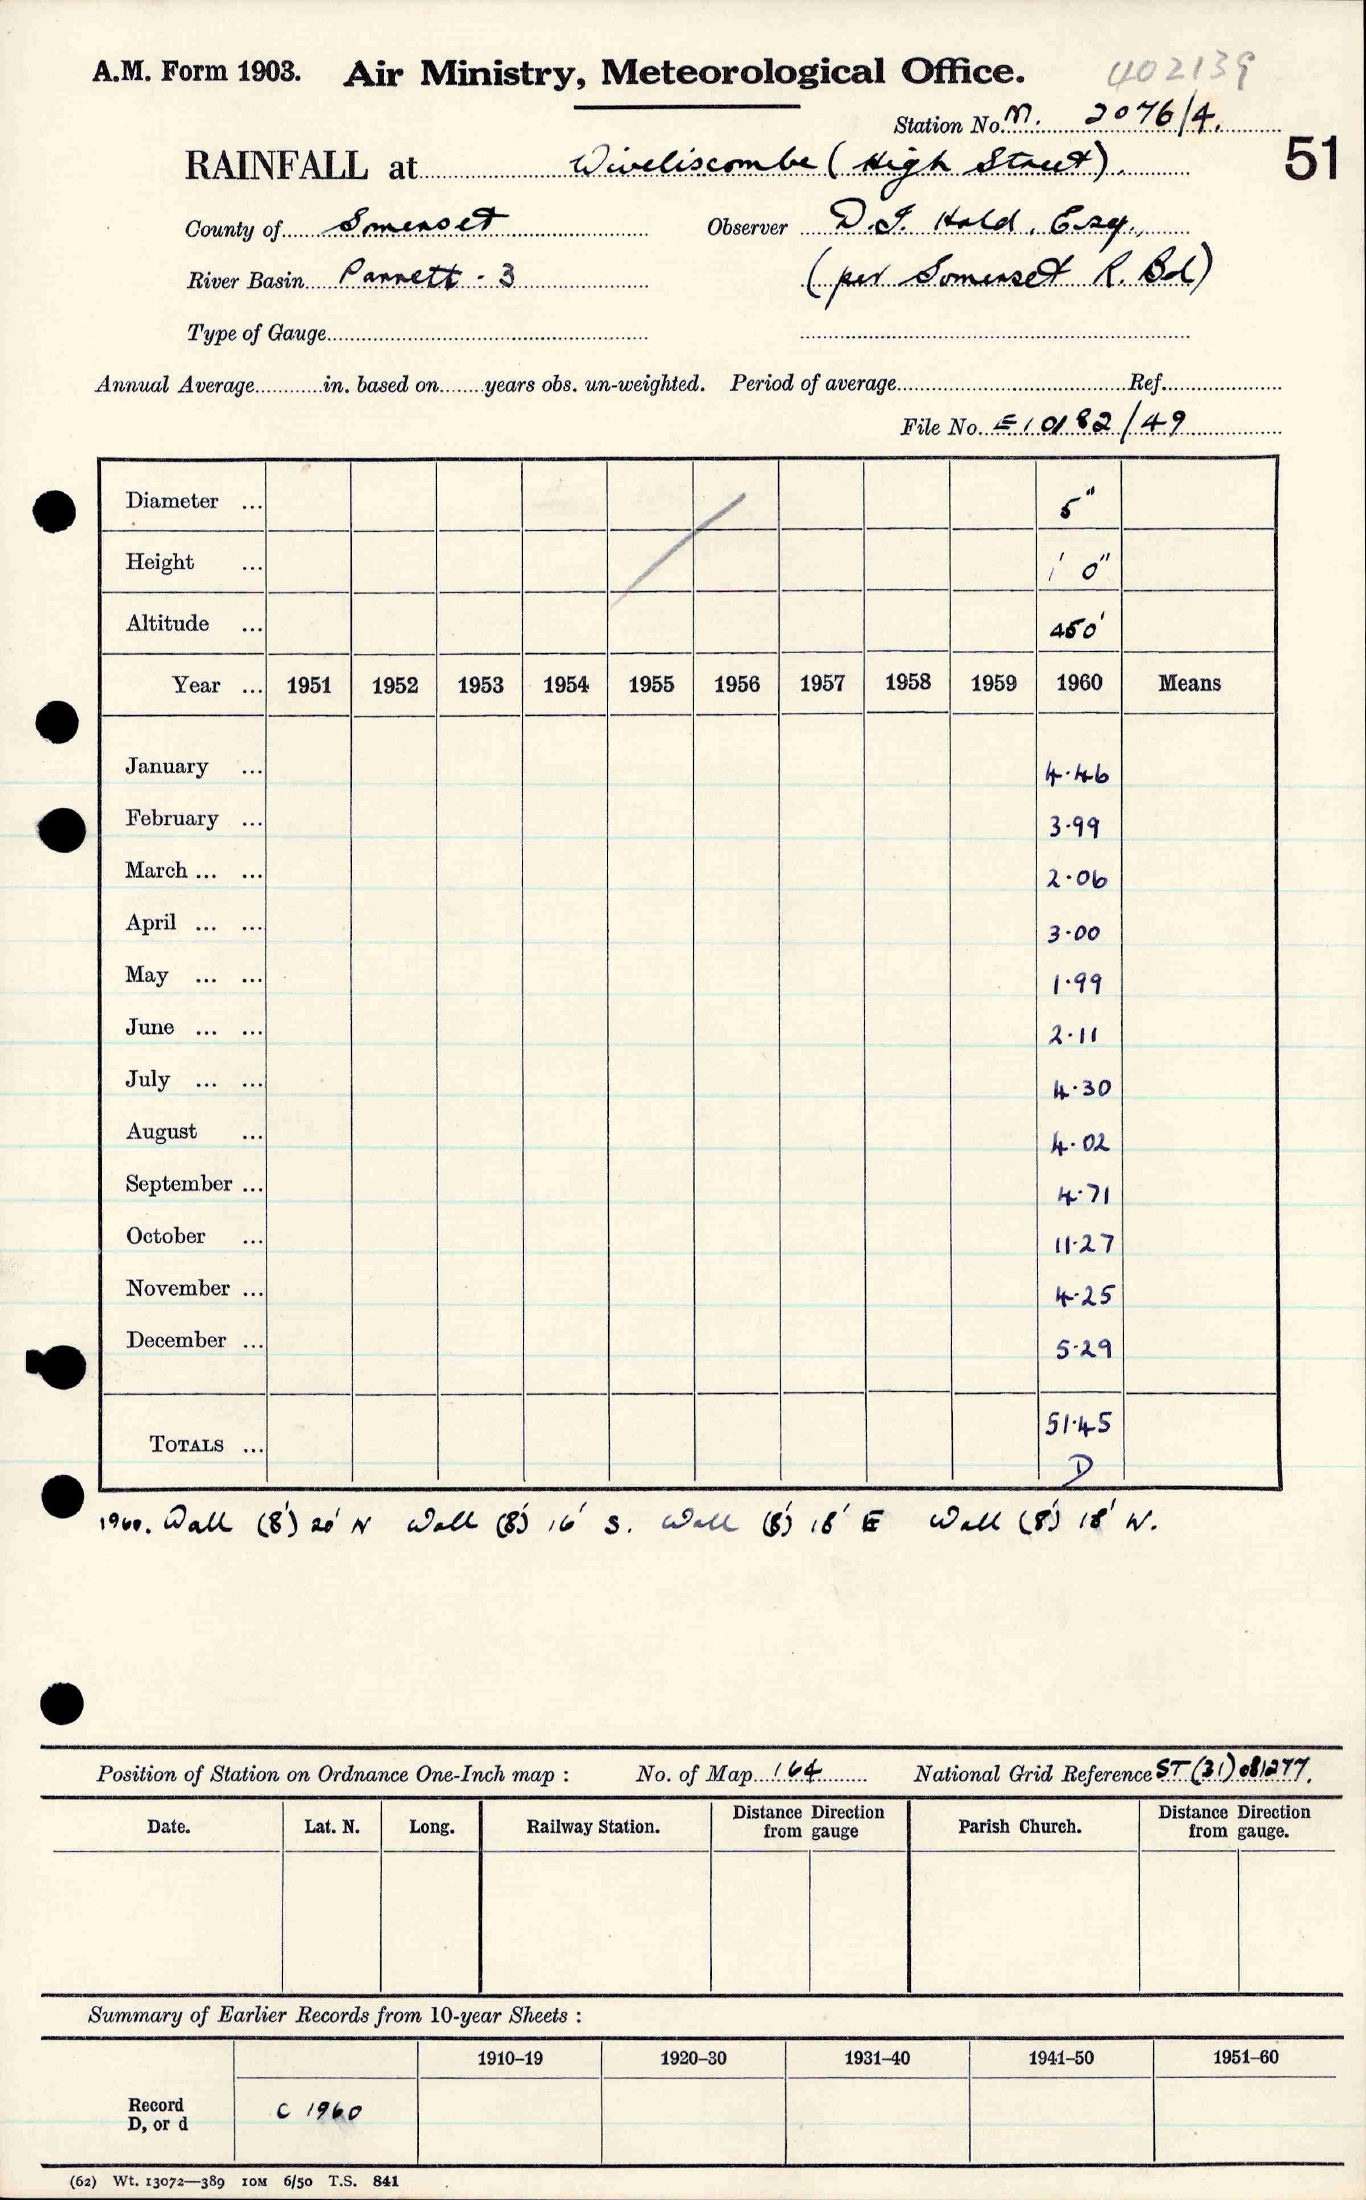 A.M. Form 1903. Air Ministry, Meteorological Office. 402139
Station No. M. 2076/4.
RAINFALL at Wiveliscombe (High Street). 51
County of Somerset Observer D.J. Hold, Esq.,
River Basin Parrett - 3 (per Somerset R. Bd)
Type of Gauge
Annual Average in. based on years obs. un-weighted. Period of average Ref.
File No. E10182/49
Diameter ... 5"
Height ... 1' 0"
Altitude ... 450'
Year ... 1951 1952 1953 1954 1955 1956 1957 1958 1959 1960 Means
January ... 4.46
February ... 3.99
March ... ... 2.06
April ... ... 3.00
May ... ... 1.99
June ... ... 2.11
July ... ... 4.30
August ... 4.02
September ... 4.71
October ... 11.27
November ... 4.25
December ... 5.29
TOTALS ... 51.45
D
1960. Wall (8') 20' N Wall (8') 16' S. Wall (8') 18' E Wall (8') 18' W.
Position of Station on Ordnance One-Inch map : No. of Map 164 National Grid Reference ST (31) 081277.
Date. Lat. N. Long. Railway Station. Distance Direction from gauge Parish Church. Distance Direction from gauge.
Summary of Earlier Records from 10-year Sheets :
1910–19 1920–30 1931–40 1941–50 1951–60
Record D, or d C 1960
(62) Wt. 13072—389 10M 6/50 T.S. 841